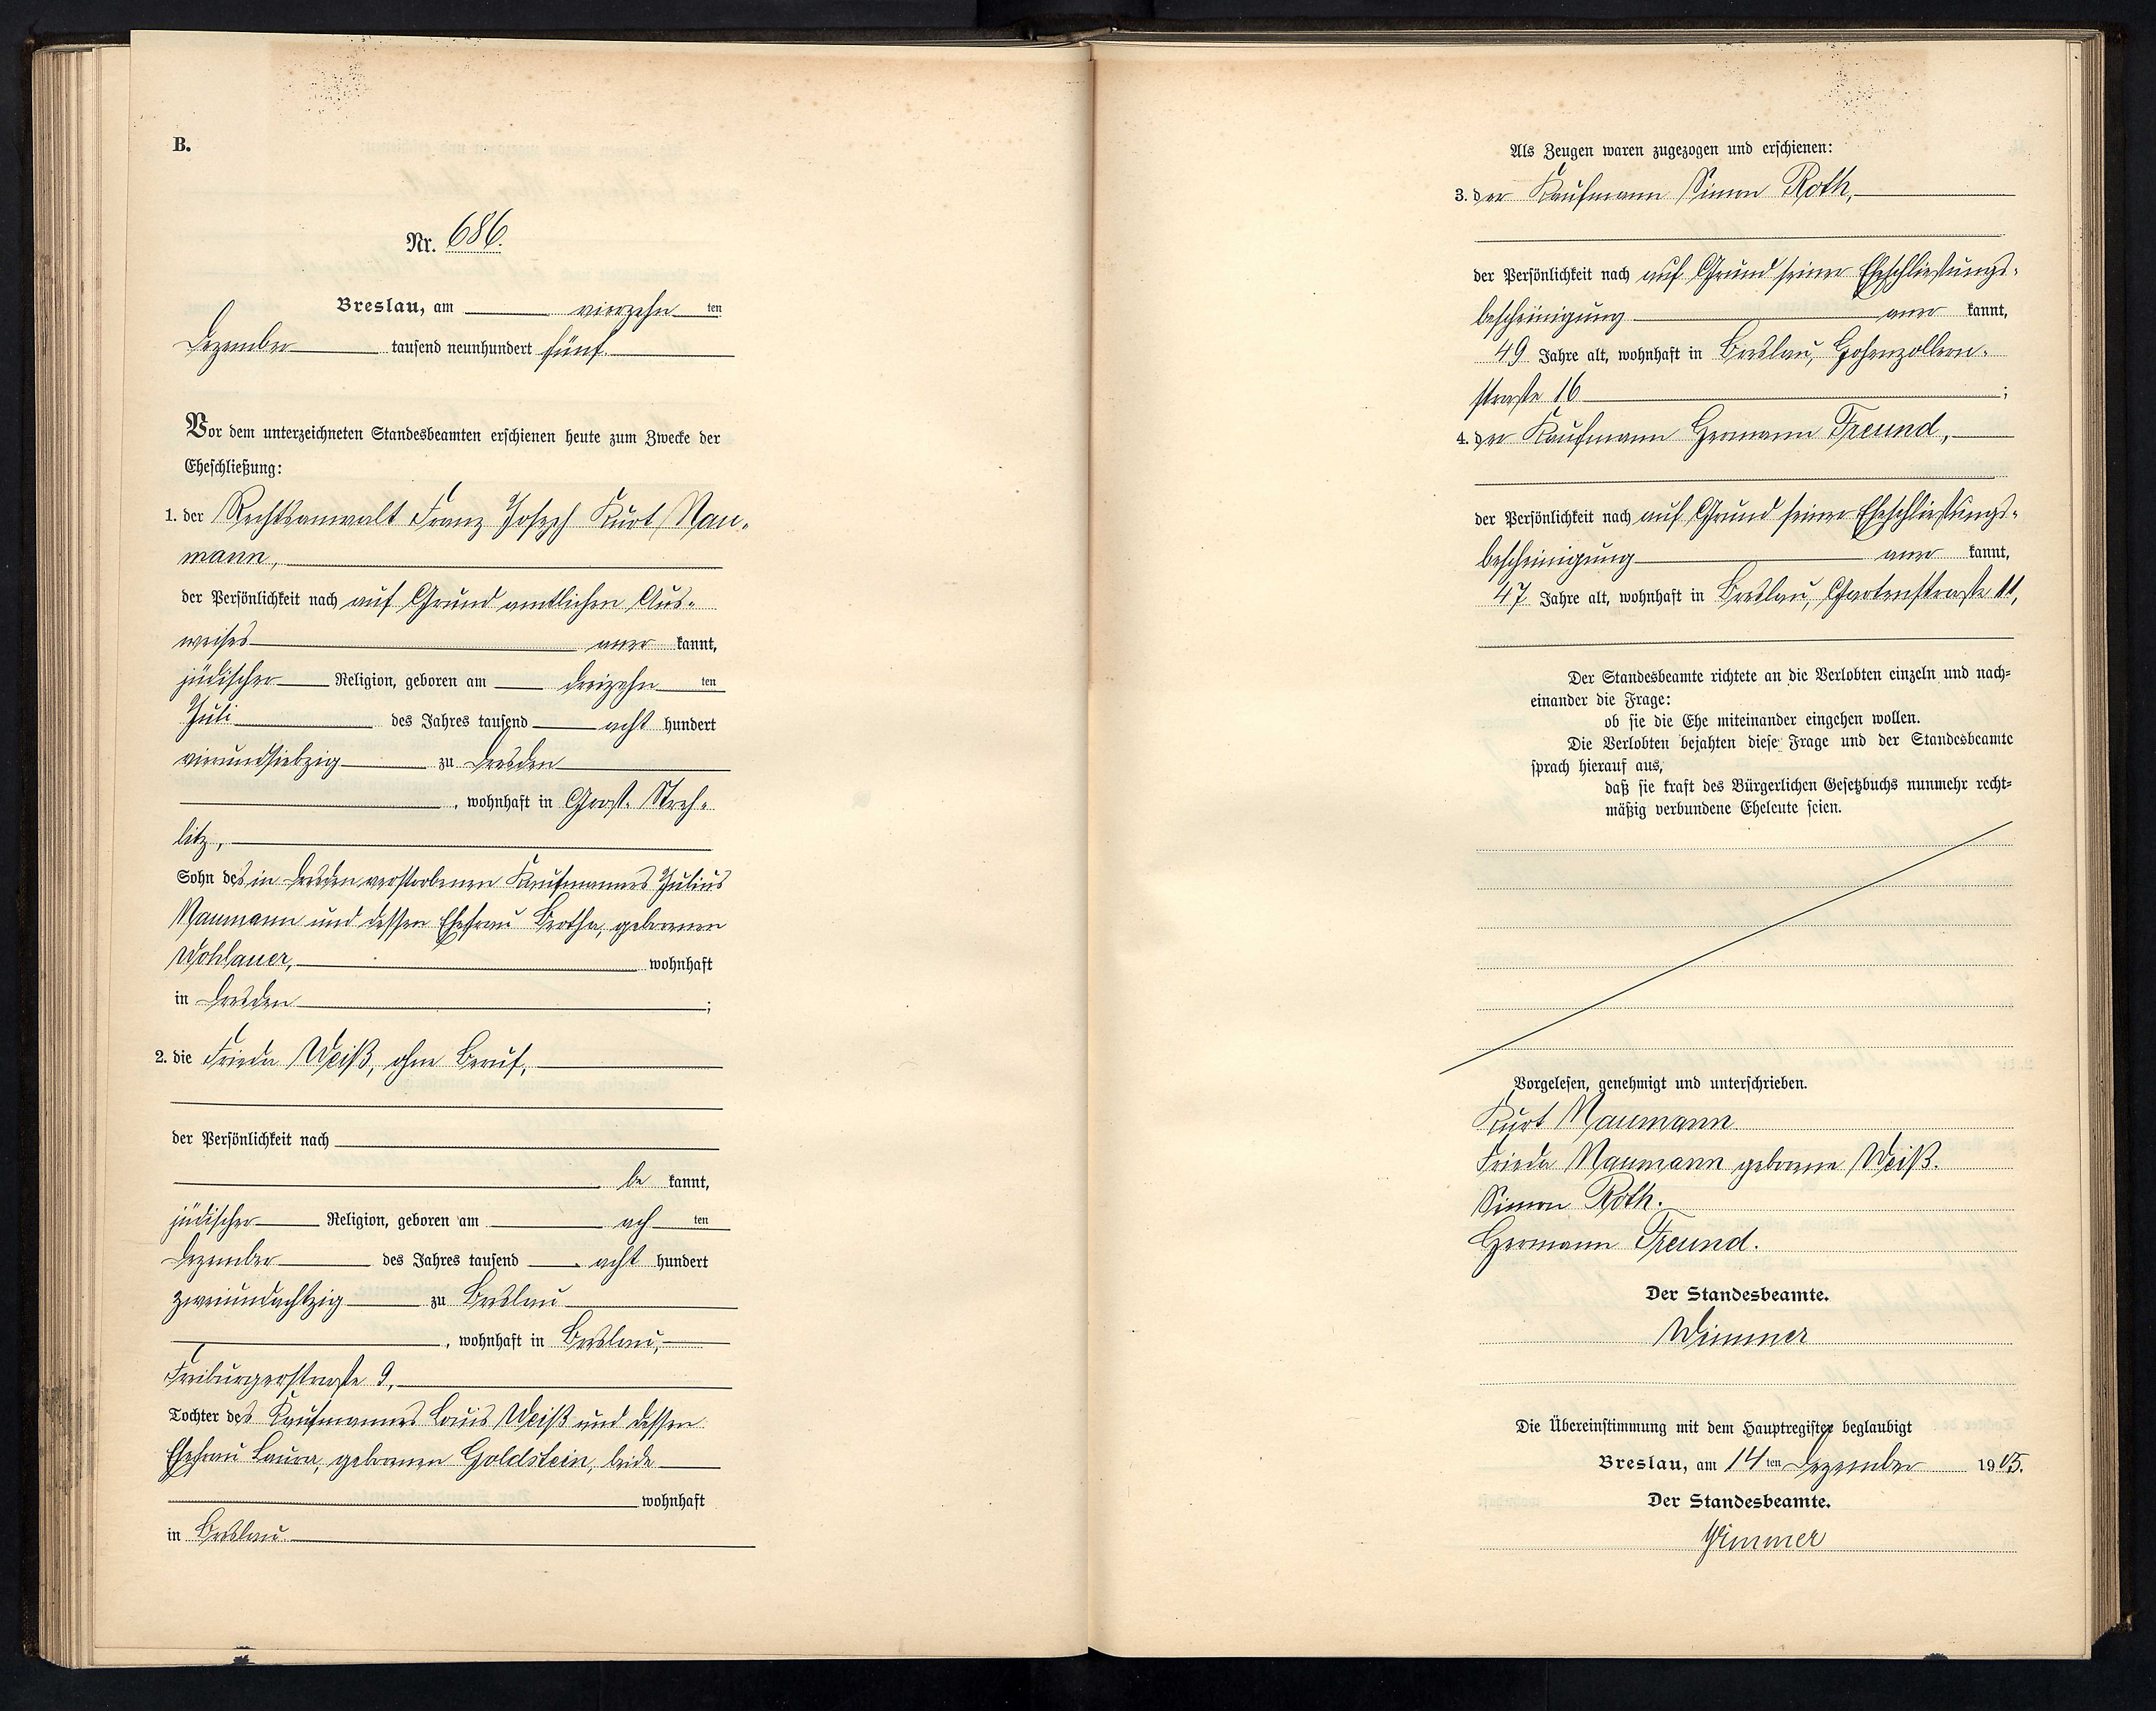 B.
Nr. 686.
Breslau, am vierzehn ten
Dezember tausend neunhundert fünf.
Vor dem unterzeichneten Standesbeamten erschienen heute zum Zwecke der
Eheschließung:
1. der Rechtsanwalt Franz Joseph Kurt Nau-
mann,
der Persönlichkeit nach auf Grund amtlichen Aus-
weises aner kannt,
jüdischer Religion, geboren am dreizehn ten
Juli des Jahres tausend acht hundert
vierundsiebzig zu Dresden
, wohnhaft in Groß-Streh-
litz,
Sohn des in Dresden verstorbenen Kaufmannes Julius
Naumann und dessen Ehefrau Bertha, geborenen
Wohlauer, wohnhaft
in Dresden ;
2. die Frieda Weiß, ohne Beruf,
der Persönlichkeit nach
be kannt,
jüdischer Religion, geboren am ach ten
Dezember des Jahres tausend acht hundert
zweiundachtzig zu Breslau
, wohnhaft in Breslau,
Freiburgerstraße 9,
Tochter des Kaufmannes Louis Weiß und dessen
Ehefrau Laura, geborenen Goldstein, beide
wohnhaft
in Breslau.
Als Zeugen waren zugezogen und erschienen:
3. der Kaufmann Simon Roth,
der Persönlichkeit nach auf Grund seiner Eheschließungs-
bescheinigung aner kannt,
49 Jahre alt, wohnhaft in Breslau, Hohenzollern-
straße 16 ;
4. der Kaufmann Hermann Freund,
der Persönlichkeit nach auf Grund seiner Eheschließungs-
bescheinigung aner kannt,
47 Jahre alt, wohnhaft in Breslau, Gartenstraße 11,
Der Standesbeamte richtete an die Verlobten einzeln und nach-
einander die Frage:
ob sie die Ehe miteinander eingehen wollen.
Die Verlobten bejahten diese Frage und der Standesbeamte
sprach hierauf aus,
daß sie kraft des Bürgerlichen Gesetzbuchs nunmehr recht-
mäßig verbundene Eheleute seien.
Vorgelesen, genehmigt und unterschrieben.
Kurt Naumann
Frieda Naumann geborene Weiß.
Simon Roth.
Hermann Freund.
Der Standesbeamte.
Wimmer
Die Übereinstimmung mit dem Hauptregister beglaubigt
Breslau, am 14 ten Dezember 1905.
Der Standesbeamte.
Wimmer